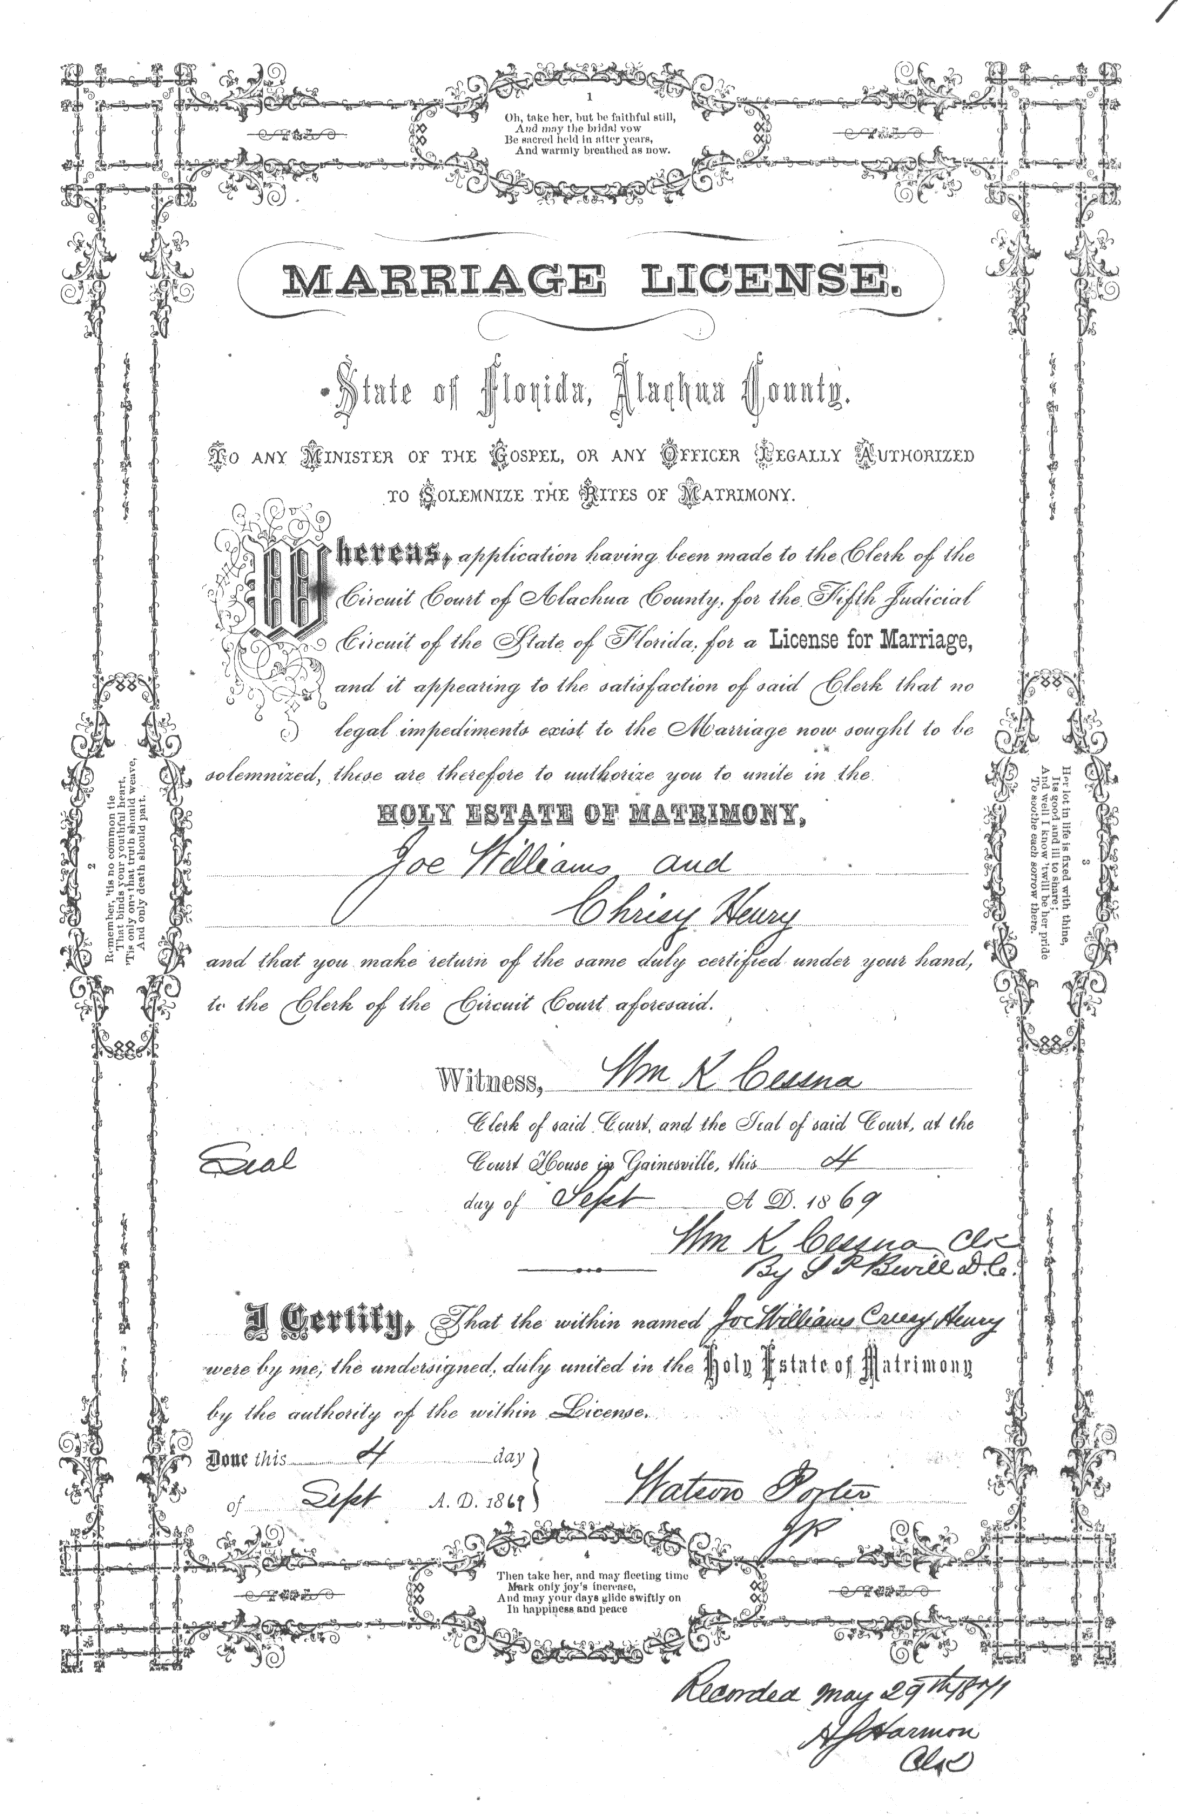 1
Oh, take her, but be faithful still,
And may the bridal vow
Be sacred held in after years,
And warmly breathed as now.
MARRIAGE LICENSE.
State of Florida, Alachua County.
TO ANY MINISTER OF THE GOSPEL, OR ANY OFFICER LEGALLY AUTHORIZED
TO SOLEMNIZE THE RITES OF MATRIMONY.
Whereas, application having been made to the Clerk of the
Circuit Court of Alachua County, for the Fifth Judicial
Circuit of the State of Florida, for a License for Marriage,
and it appearing to the satisfaction of said Clerk that no
legal impediments exist to the Marriage now sought to be
solemnized, these are therefore to authorize you to unite in the
HOLY ESTATE OF MATRIMONY,
Joe Williams and
Chrisy Henry
and that you make return of the same duly certified under your hand,
to the Clerk of the Circuit Court aforesaid.
2
Remember, 'tis no common tie
That binds your youthful heart,
'Tis only one that truth should weave,
And only death should part.
3
Her lot in life is fixed with thine,
Its good and ill to share;
And well I know 'twill be her pride
To soothe each sorrow there.
Witness, Wm K Cessna
Clerk of said Court, and the Seal of said Court, at the
Seal
Court House in Gainesville, this 4
day of Sept A D. 1869
Wm K Cessna Clk
By S P Bevill D.C.
I Certify, That the within named Joe Williams Crecy Henry
were by me, the undersigned, duly united in the Holy Estate of Matrimony
by the authority of the within License.
Done this 4 day
of Sept A. D. 1869
Watson Porter
JP
4
Then take her, and may fleeting time
Mark only joy's increase,
And may your days glide swiftly on
In happiness and peace
Recorded May 29th 1871
Harmon
Clk